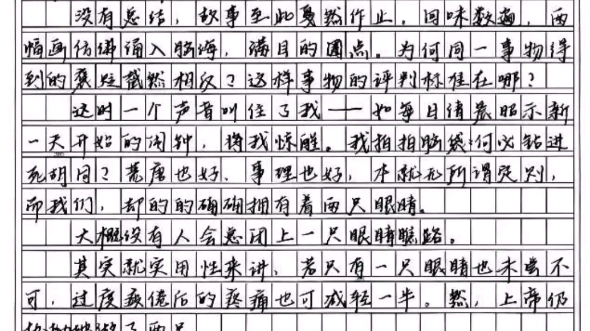 没有总结，故事至此戛然作止，回味数遍，两
幅画仿佛涌入脑海，满目的圆点。为何同一事物得
到的褒贬截然相反？这样事物的评判标准在哪？
这时一个声音叫住了我——如每日清晨昭示新
一天开始的闹钟，将我惊醒。我拍拍脑袋：何必钻进
死胡同？荒唐也好、事理也好，本就无所谓定则，
而我们，却的的确确拥有着两只眼睛。
大概没有人会总闭上一只眼睛瞧路。
其实就实用性来讲，若只有一只眼睛也未尝不
可，过度疲倦后的疼痛也可减轻一半。然，上帝仍
了两只